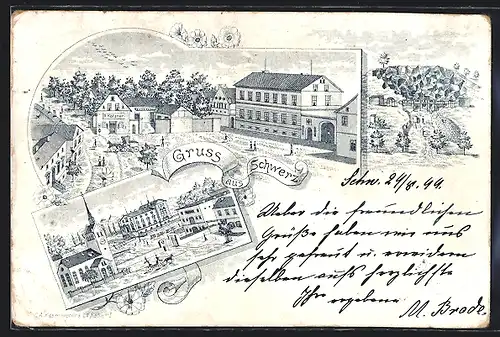 Gruss
aus
Schwerz
Schw. 24/8. 99.
Ueber die freundlichen
Grüße haben wir uns
sehr gefreut u. erwidern
dieselben aufs herzlichste
Ihr ergebene
M. Brode